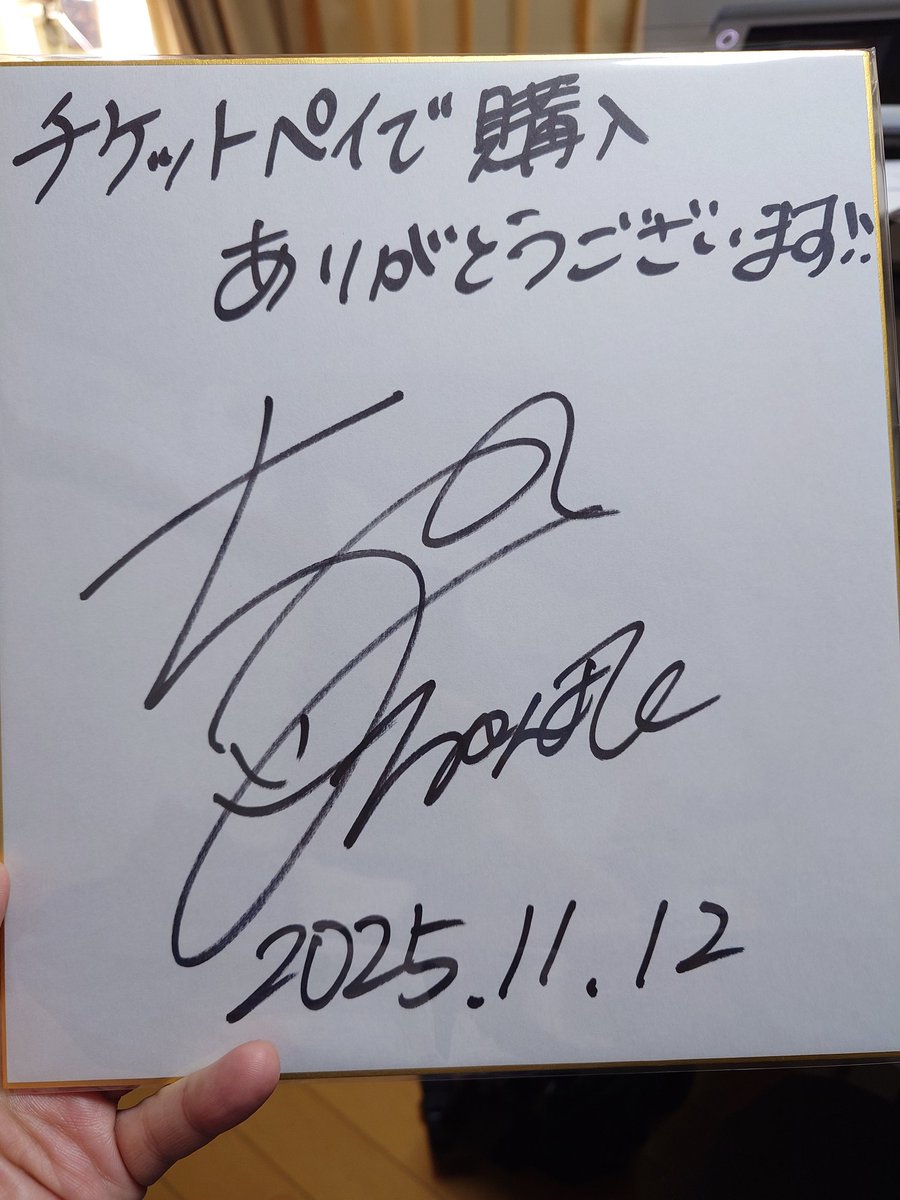 チケットペイで購入
ありがとうございます!!
2025.11.12